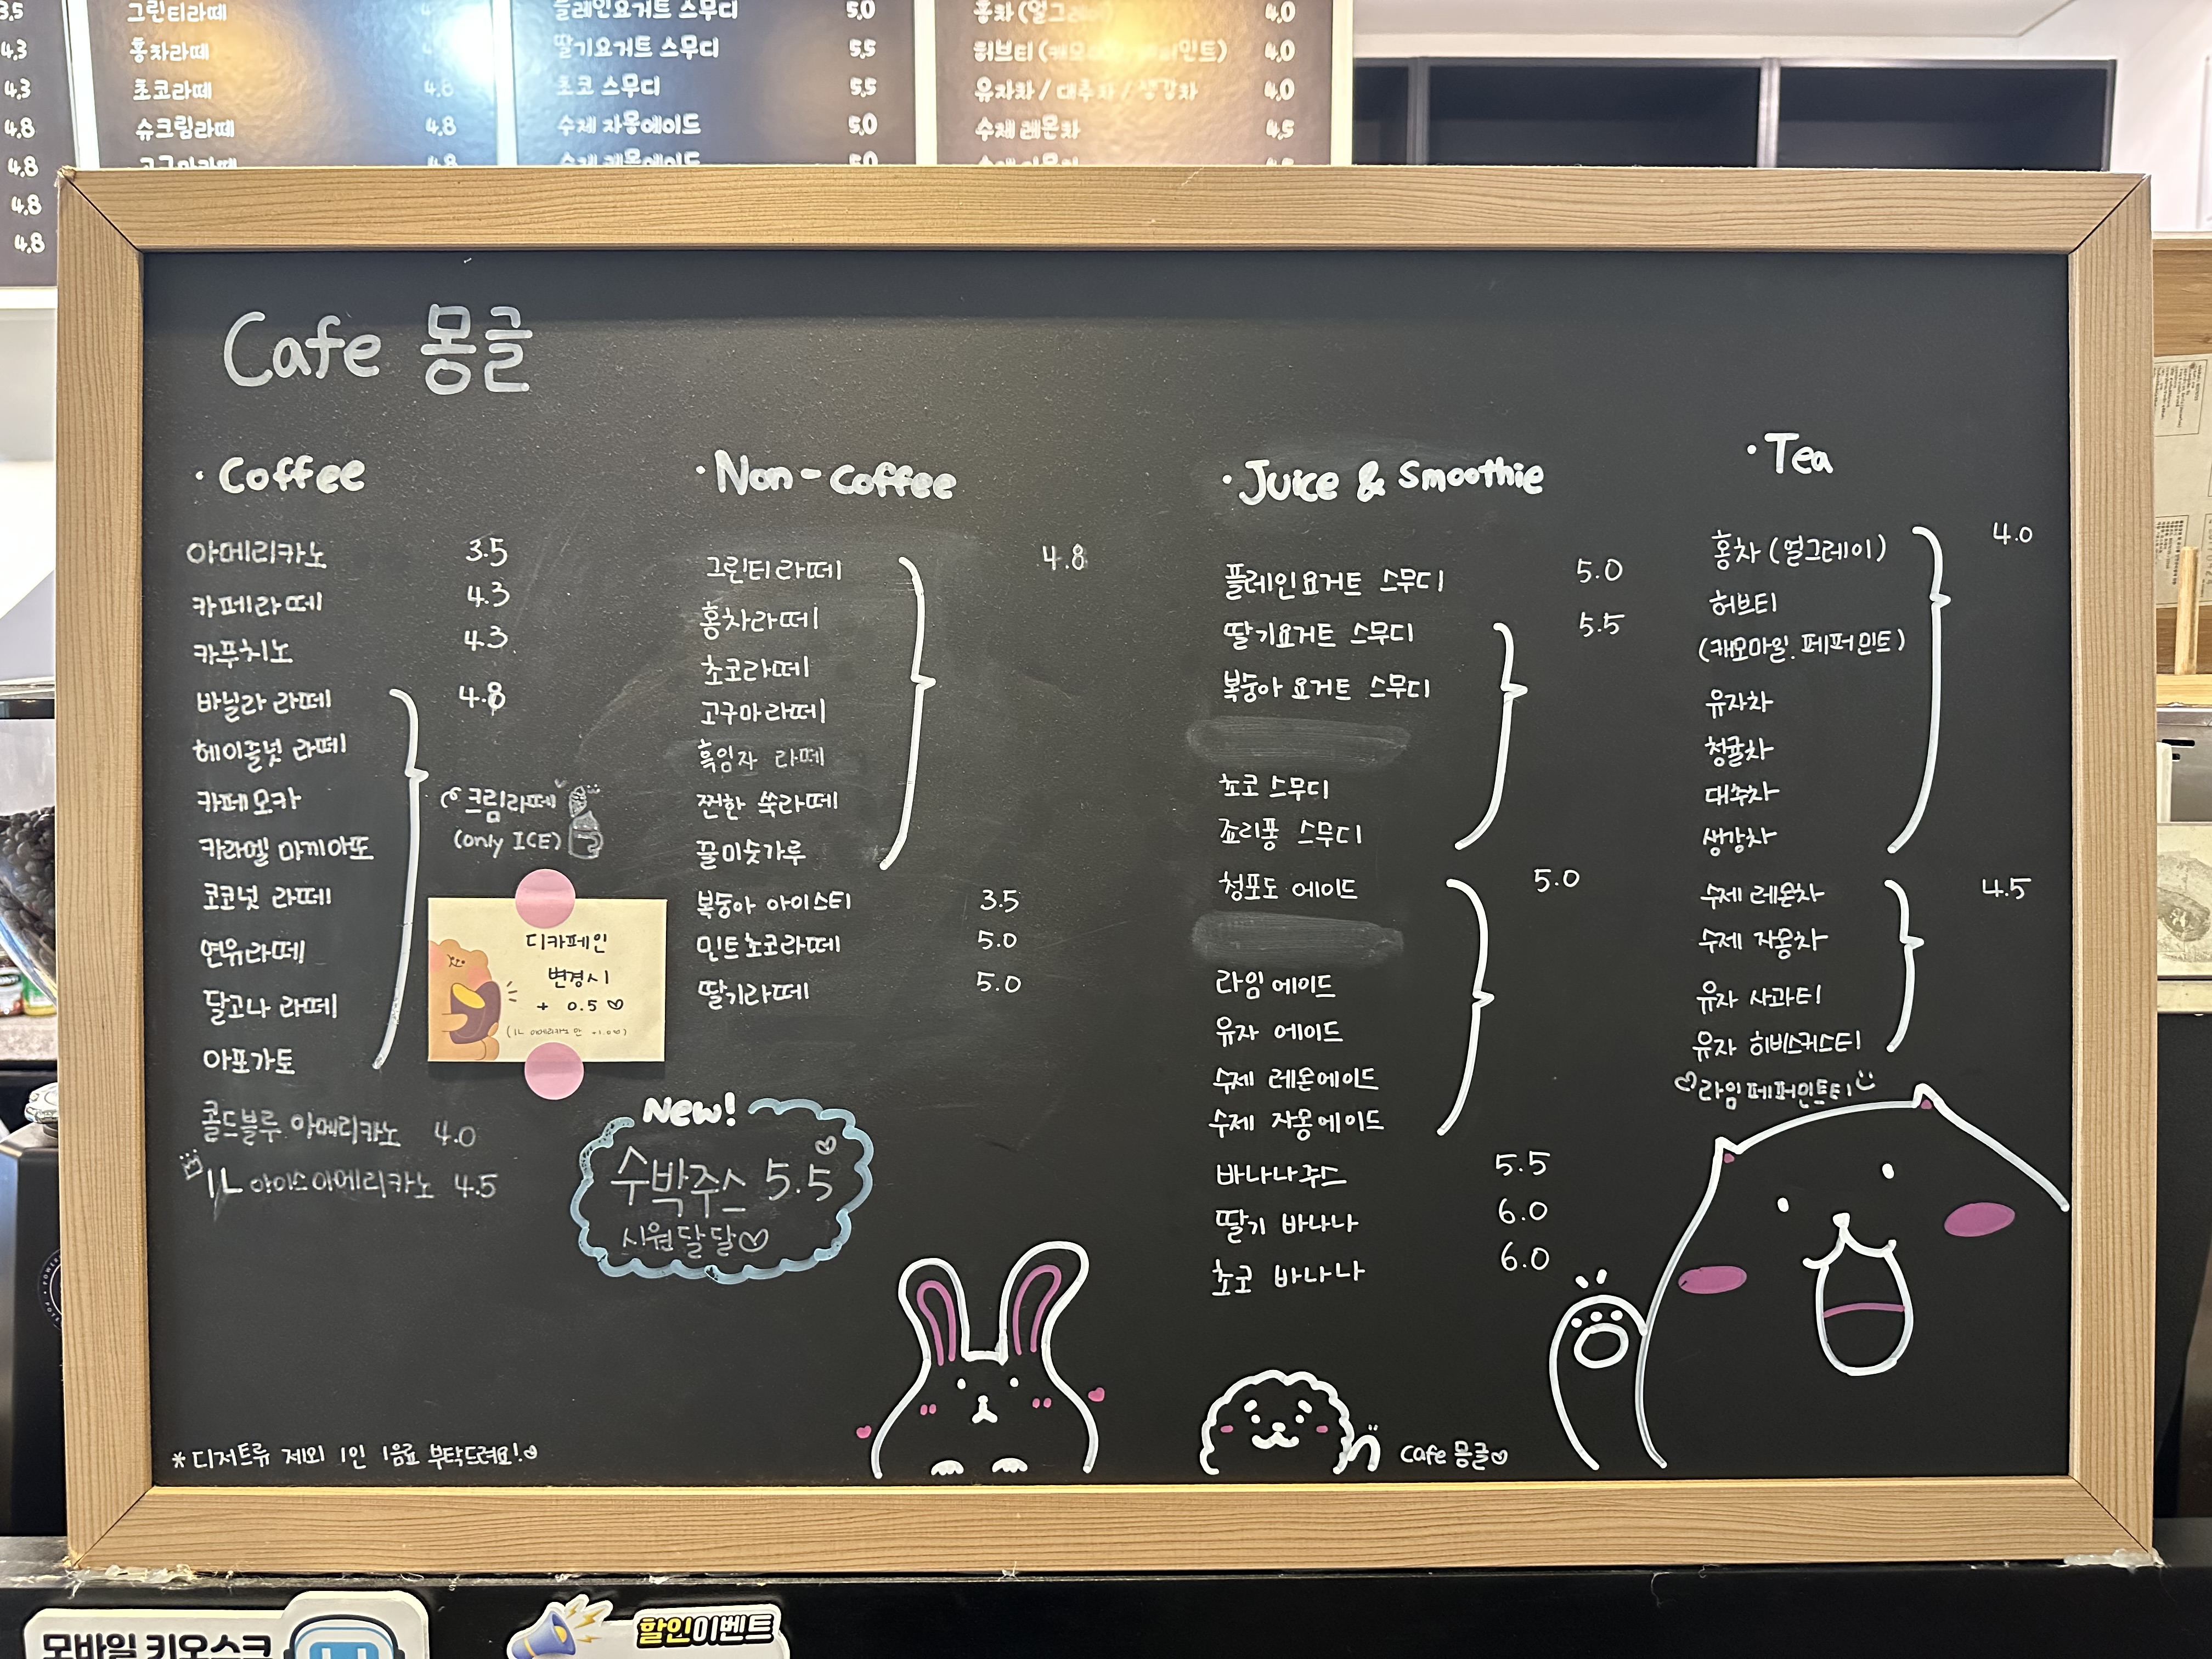 3.5
4.3
4.3
4.8
4.8
4.8
4.8
그린티라떼
홍차라떼
초코라떼 4.8
슈크림라떼 4.8
고구마라떼 4.8
플레인요거트 스무디 5.0
딸기요거트 스무디 5.5
초코 스무디 5.5
수제 자몽에이드 5.0
수제 레몬에이드 5.0
홍차 (얼그레이) 4.0
허브티 (캐모 민트) 4.0
유자차 / 대추차 / 생강차 4.0
수제 레몬차 4.5
Cafe 몽글
· Coffee
아메리카노 3.5
카페라떼 4.3
카푸치노 4.3
바닐라 라떼 4.8
헤이즐넛 라떼
카페모카
카라멜 마끼아또
코코넛 라떼
연유라떼
달고나 라떼
아포가토
크림라떼
(only ICE)
디카페인
변경시
+ 0.5 ♡
(1L 아메리카노만 +1.0)
콜드블루 아메리카노 4.0
1L 아이스아메리카노 4.5
· Non-coffee
그린티라떼 4.8
홍차라떼
초코라떼
고구마라떼
흑임자 라떼
찐한 쑥라떼
꿀미숫가루
복숭아 아이스티 3.5
민트초코라떼 5.0
딸기라떼 5.0
New!
수박주스 5.5
시원달달♡
· Juice & Smoothie
플레인요거트 스무디 5.0
딸기요거트 스무디 5.5
복숭아 요거트 스무디
초코 스무디
죠리퐁 스무디
청포도 에이드 5.0
라임 에이드
유자 에이드
수제 레몬에이드
수제 자몽에이드
바나나주스 5.5
딸기 바나나 6.0
초코 바나나 6.0
· Tea
홍차 (얼그레이) 4.0
허브티
(캐모마일, 페퍼민트)
유자차
청귤차
대추차
생강차
수제 레몬차 4.5
수제 자몽차
유자 사과티
유자 히비스커스티
♡라임페퍼민트티
* 디저트류 제외 1인 1음료 부탁드려요!♡
Cafe 몽글♡
모바일 키오스크
할인이벤트